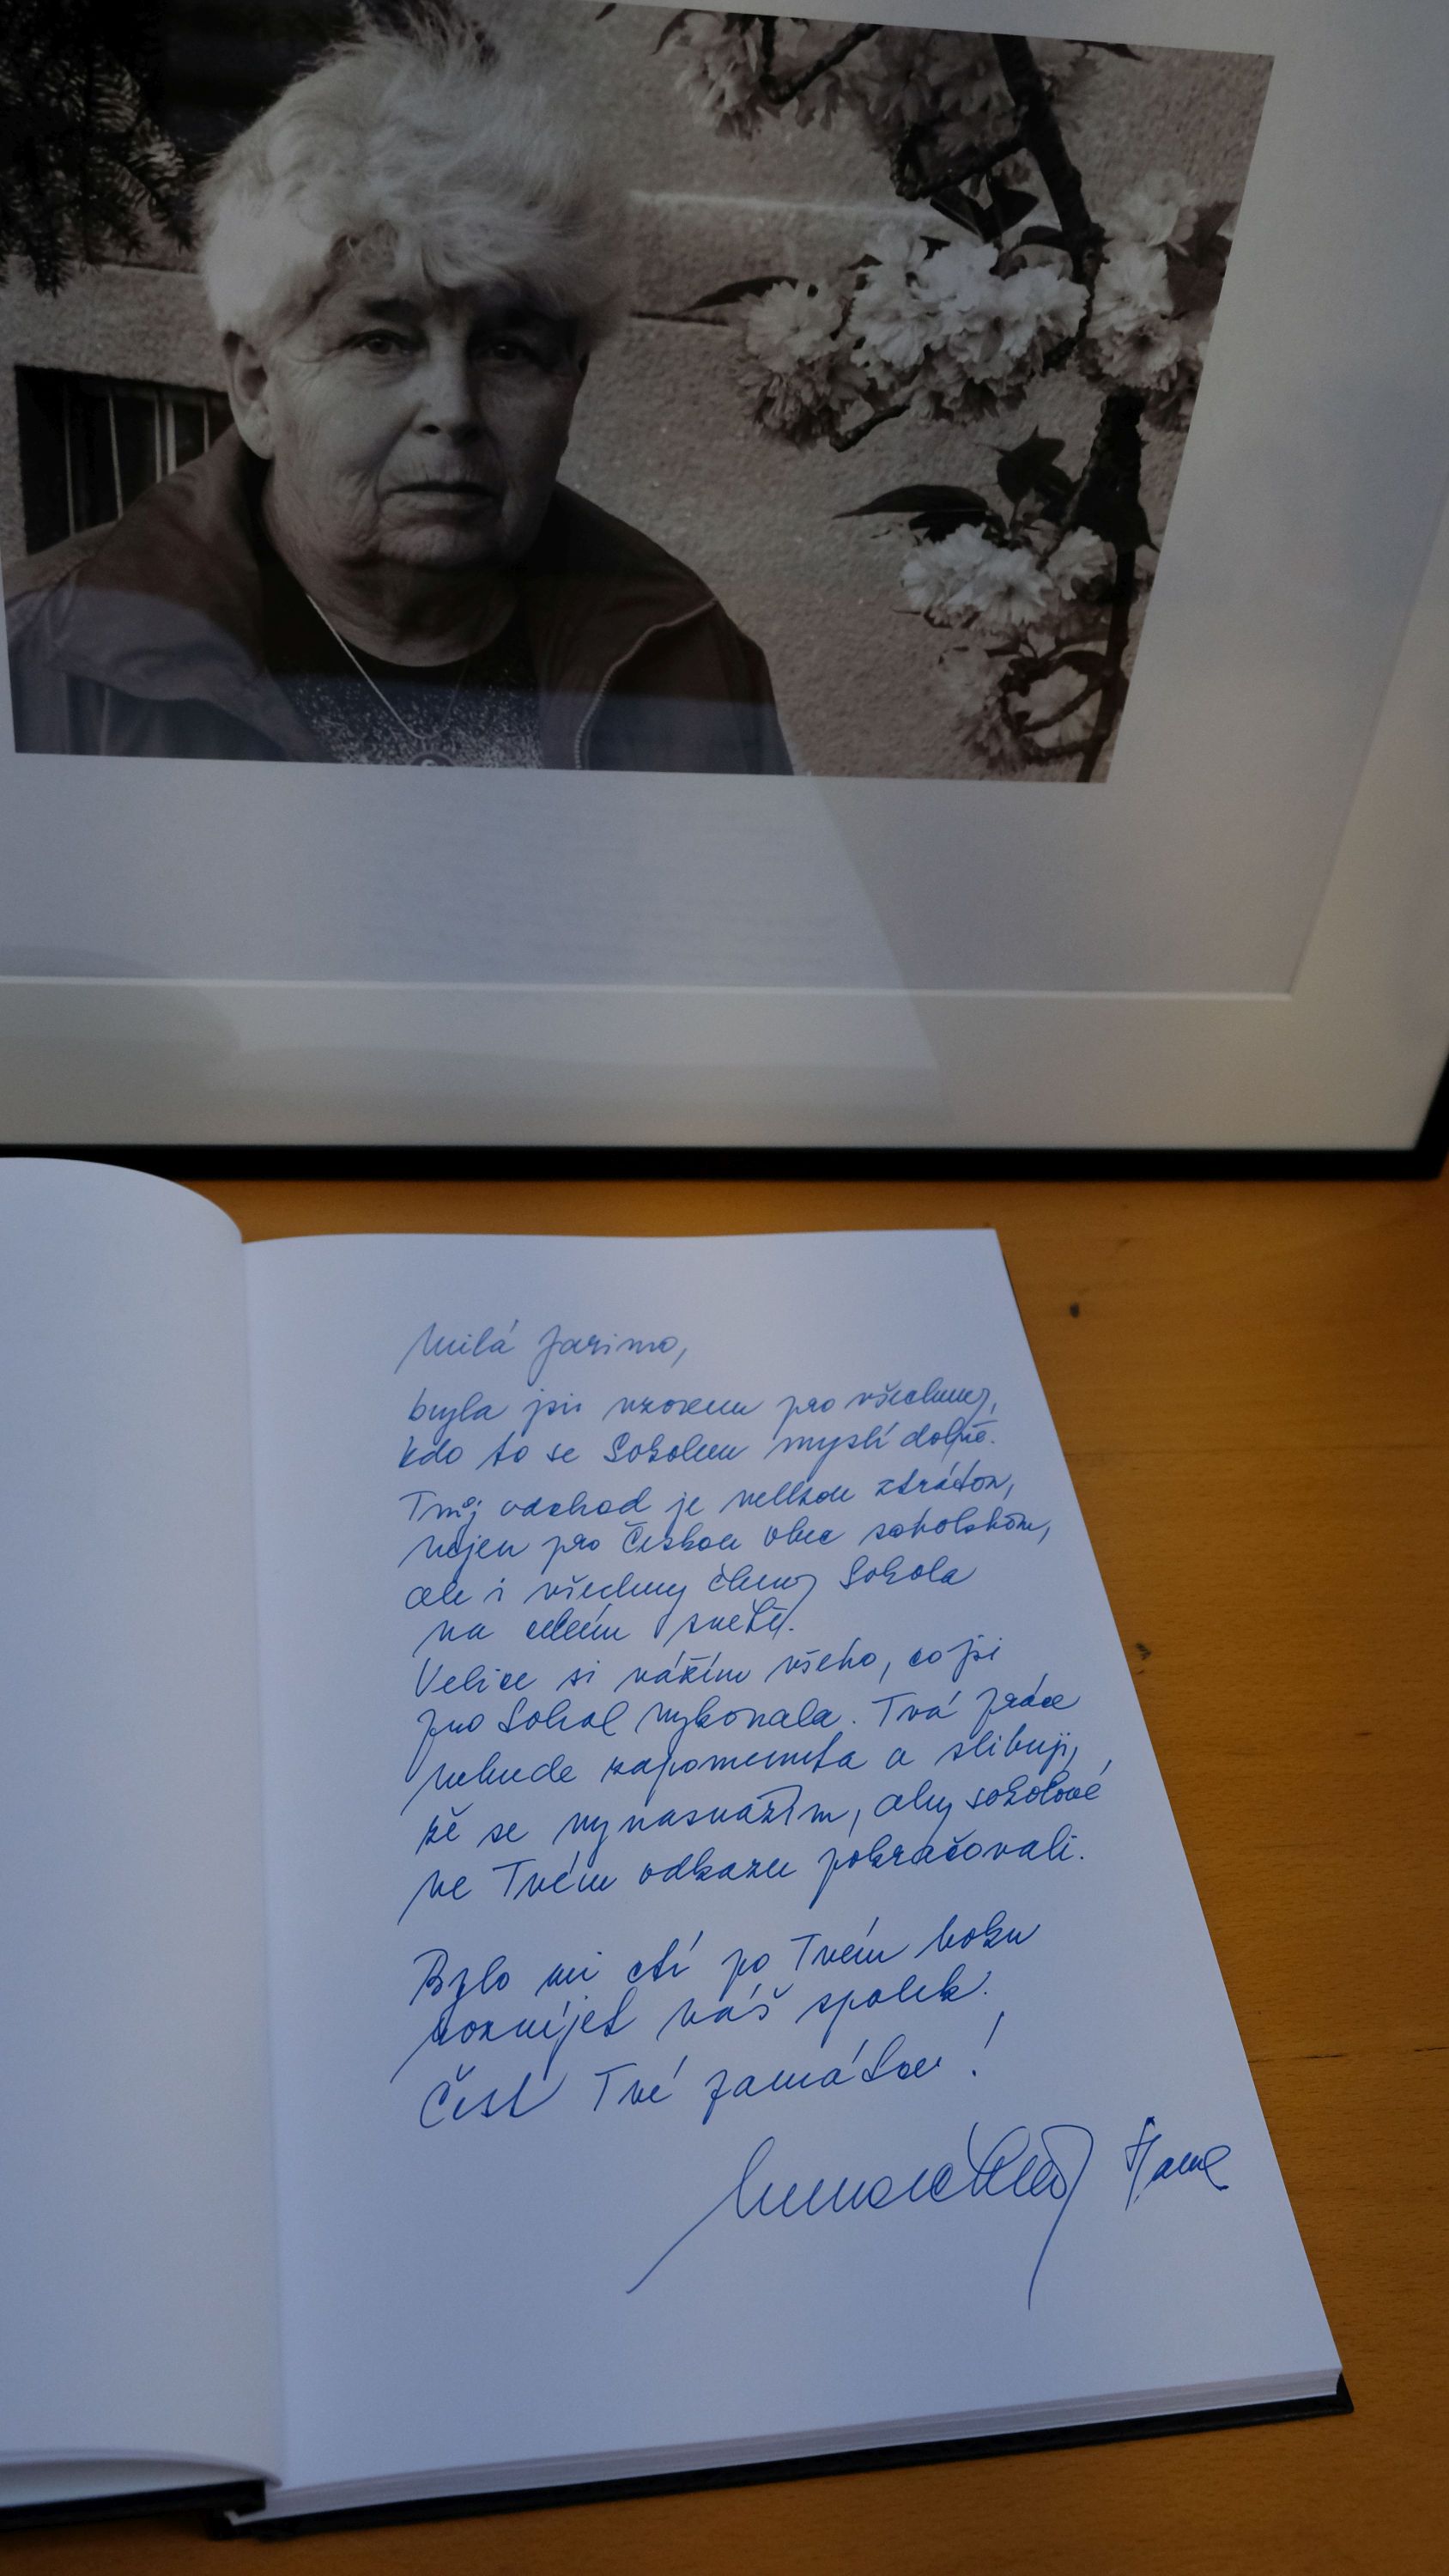 Milá Jarino,
byla jsi vzorem pro všechny,
kdo to se Sokolem myslí dobře.
Tvůj odchod je velkou ztrátou,
nejen pro Českou obec sokolskou,
ale i všechny členy Sokola
na celém světě.
Velice si vážím všeho, co jsi
pro Sokol vykonala. Tvá práce
nebude zapomenuta a slibuji,
že se vynasnažím, aby sokolové
ve Tvém odkazu pokračovali.
Bylo mi ctí po Tvém boku
rozvíjet náš spolek.
Čest Tvé památce!